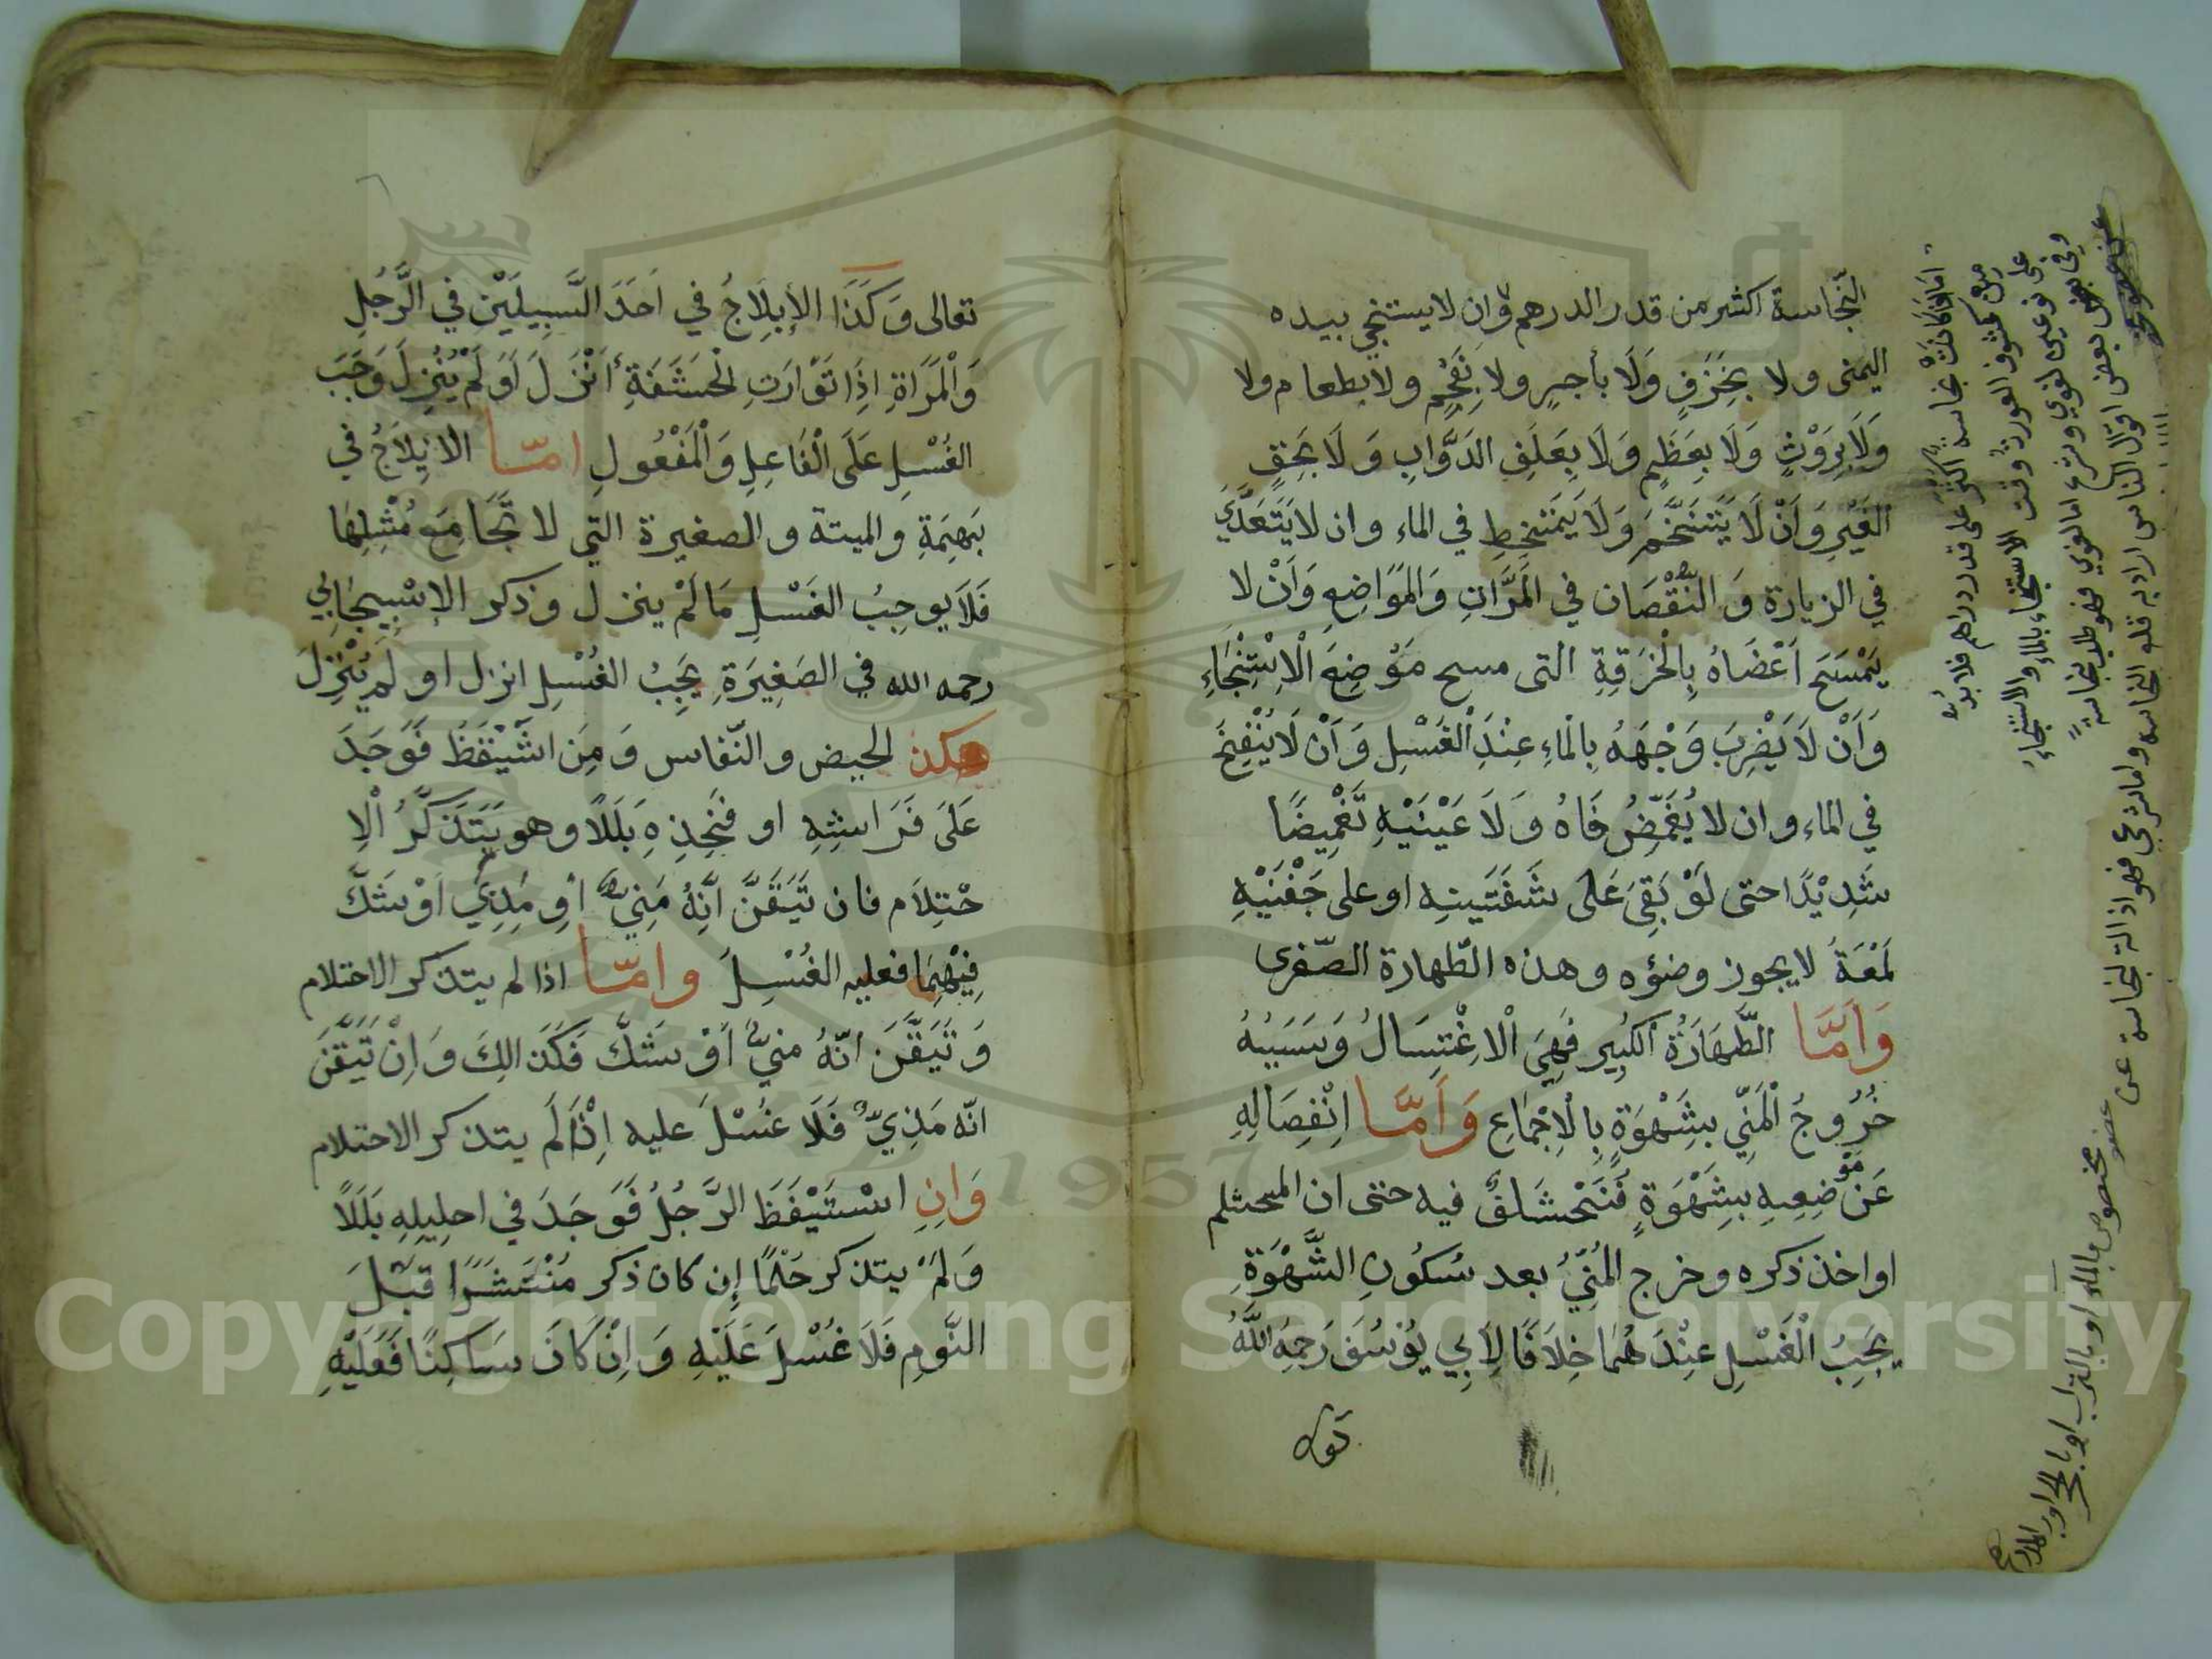 النّجاسة اكثر من قدر الدرهم وان لا يستنجي بيده
اليمنى ولا بِخَزَفٍ وَلَا بأجرٍ ولا بِفَحْمٍ ولا بطعام ولا
وَلَا بِرَوْثٍ وَلَا بِعَظْمٍ وَلَا بِعَلَفِ الدَوَّابِ وَلَا بَحَقِ
الغَيْرِ وَاَنْ لَا يَتَنَخَّمَ وَلَا يَمْتَخِطِ في الماء وان لا يَتَعَدَّيَ
في الزيادة وَالنُّقْصَان في المَرَّاتِ وَالمَوَاضِعِ وَاَنْ لا
يَمْسَحَ اَعْضَاهُ بِالْخِرَقِةِ التى مسح مَوْضِعَ الْاِسْتِنْجَاءِ
وَاَنْ لَا يَضْرِبَ وَجْهَهُ بِالْمَاءِ عِنْدَ الْغَسْلِ وَاَنْ لَا يَنْفِخَ
في الماء وان لا يُغَمِّضُ فَاهُ وَلَا عَيْنَيْهِ تَغْمِيضًا
شَدِيْدًا حتى لَوْ بَقِىَ عَلَى شَفَتَيْهِ او على جَفْنَيْهِ
لَمْعَةً لا يجوز وضوءه وهذه الطّهارة الصّغرى
وَاَمَّا الطَّهَارَةُ الكُبير فَهِيَ الْاغْتِسَالُ وَسَبَبُهُ
خُرُوجُ الْمَنِّي بِشَهْوَةٍ بِالْاِجْمَاعِ وَاَمَّا اِنْفِصَالِهِ
عَنْ مَوْضِعِهِ بِشَهْوَةٍ فيه حتى ان المحتلم
او اخذ ذكره وخرج المُنِيُّ بعد سُكُونِ الشَّهْوَةِ
يَجِبُ الْغَسْلِ عِنْدَهُمَا خِلَافًا لِاَبِي يُوْسُفَ رَحِمَهُ اللّٰهُ
تعالى وَكَذَا الإيلاجُ في اَحَدَ السَّبِيلَيْن في الَّرَّجُلِ
وَالْمَرَاةِ اِذَا تَوَارَتِ لْحَشَفَةِ اَنْزَلَ اَوْ لَمْ يُنْزِلَ وَجَبَ
الغُسْلِ عَلَى الْفَاعِلِ وَالْمَفْعُولِ امّا الايلاَجُ في
بَهِيمَةِ والميتة والصغيرة التي لا تُجَامَعُ مُثْلِهَا
فَلَا يوجِبُ الغَسْلِ مَا لَمْ ينزل وذكر الاِسْبِيجَابِي
رحمه الله في الصَغِيرَةِ يَجِبُ الغُسْلِ انزل او لَمْ يُنْزِلَ
هكذا الحيض والنّفاس وَمَنِ اسْتَيْقَظُ فَوَجَدَ
عَلَى فَرَاشِهِ او فَخِذِهِ بَلَلًا وهو يَتَذَكَّرُ الْاِ
حْتِلَام فان تَيَقَّنَ اَنَّهُ مَنِيٌّ اوِ مَذِيٌّ اَوْ شَكَّ
فِيْهِمَا فعليه الغُسْلَ وامّا اذا لم يتذكر الاحتلام
وَتَيَقَّنَ انّهُ منيٌّ اَوْ شَكَّ فَكَذَالِكَ وَاِنْ تَيَقَّنَ
انّه مَذِيٌّ فَلَا غُسْلَ عليه اِذَا لَمْ يتذكر الاحتلام
وَانِ اسْتَيْقَظَ الرَّجُلُ فَوَجَدَ في احليلِهِ بَلَلًا
وَلَمْ يتذكر حَلْمًا اِن كان ذكر مُنْتَشَرًا قَبْلَ
النَّومِ فَلَا غُسْلَ عَلَيْهِ وَاِنْ كَانَ سَاكِنًا فَعَلَيْهِ
اما اذا كانت نجاسة اكثر على قدر دراهم فلا بدّ
من كشف العورة وقت الاستنجاء بالماء والاستنجاء
على نوعين لغوي وشرعي اما لغوي فهو طلب نجاسة
وفي بعض بعض اقوال الناس اراد به قلع النجاسة واما شرعي فهو ازالة نجاسة عن
عضو مخصوص بالماء او بالتراب او بالحجر او بالمدر
Copyright © King Saud University
1957